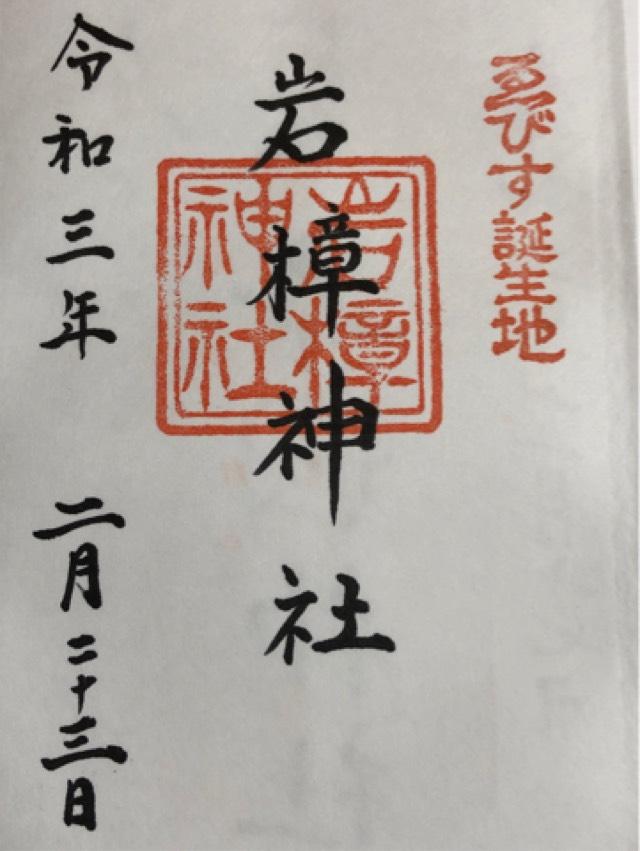 ゑびす誕生地
岩樟神社
岩樟
神社
令和三年 二月二十三日